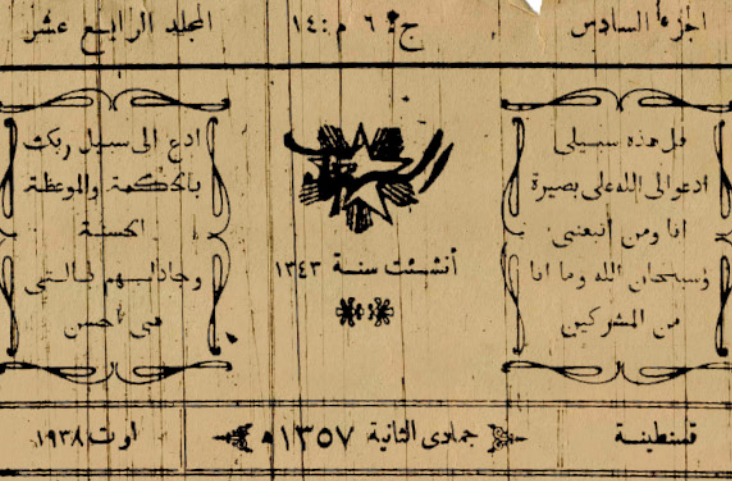 الجزء السادس
ج: ٦ م: ١٤
المجلد الرابع عشر
قل هذه سبيلي
ادعو الى الله على بصيرة
انا ومن اتبعني
وسبحان الله وما انا
من المشركين
أنشئت سنة ١٣٤٣
ادع الى سبيل ربك
بالحكمة والموعظة
الحسنة
وجادلهم بالتي
هي احسن
قسنطينة
جمادى الثانية ١٣٥٧ ه
اوت ١٩٣٨